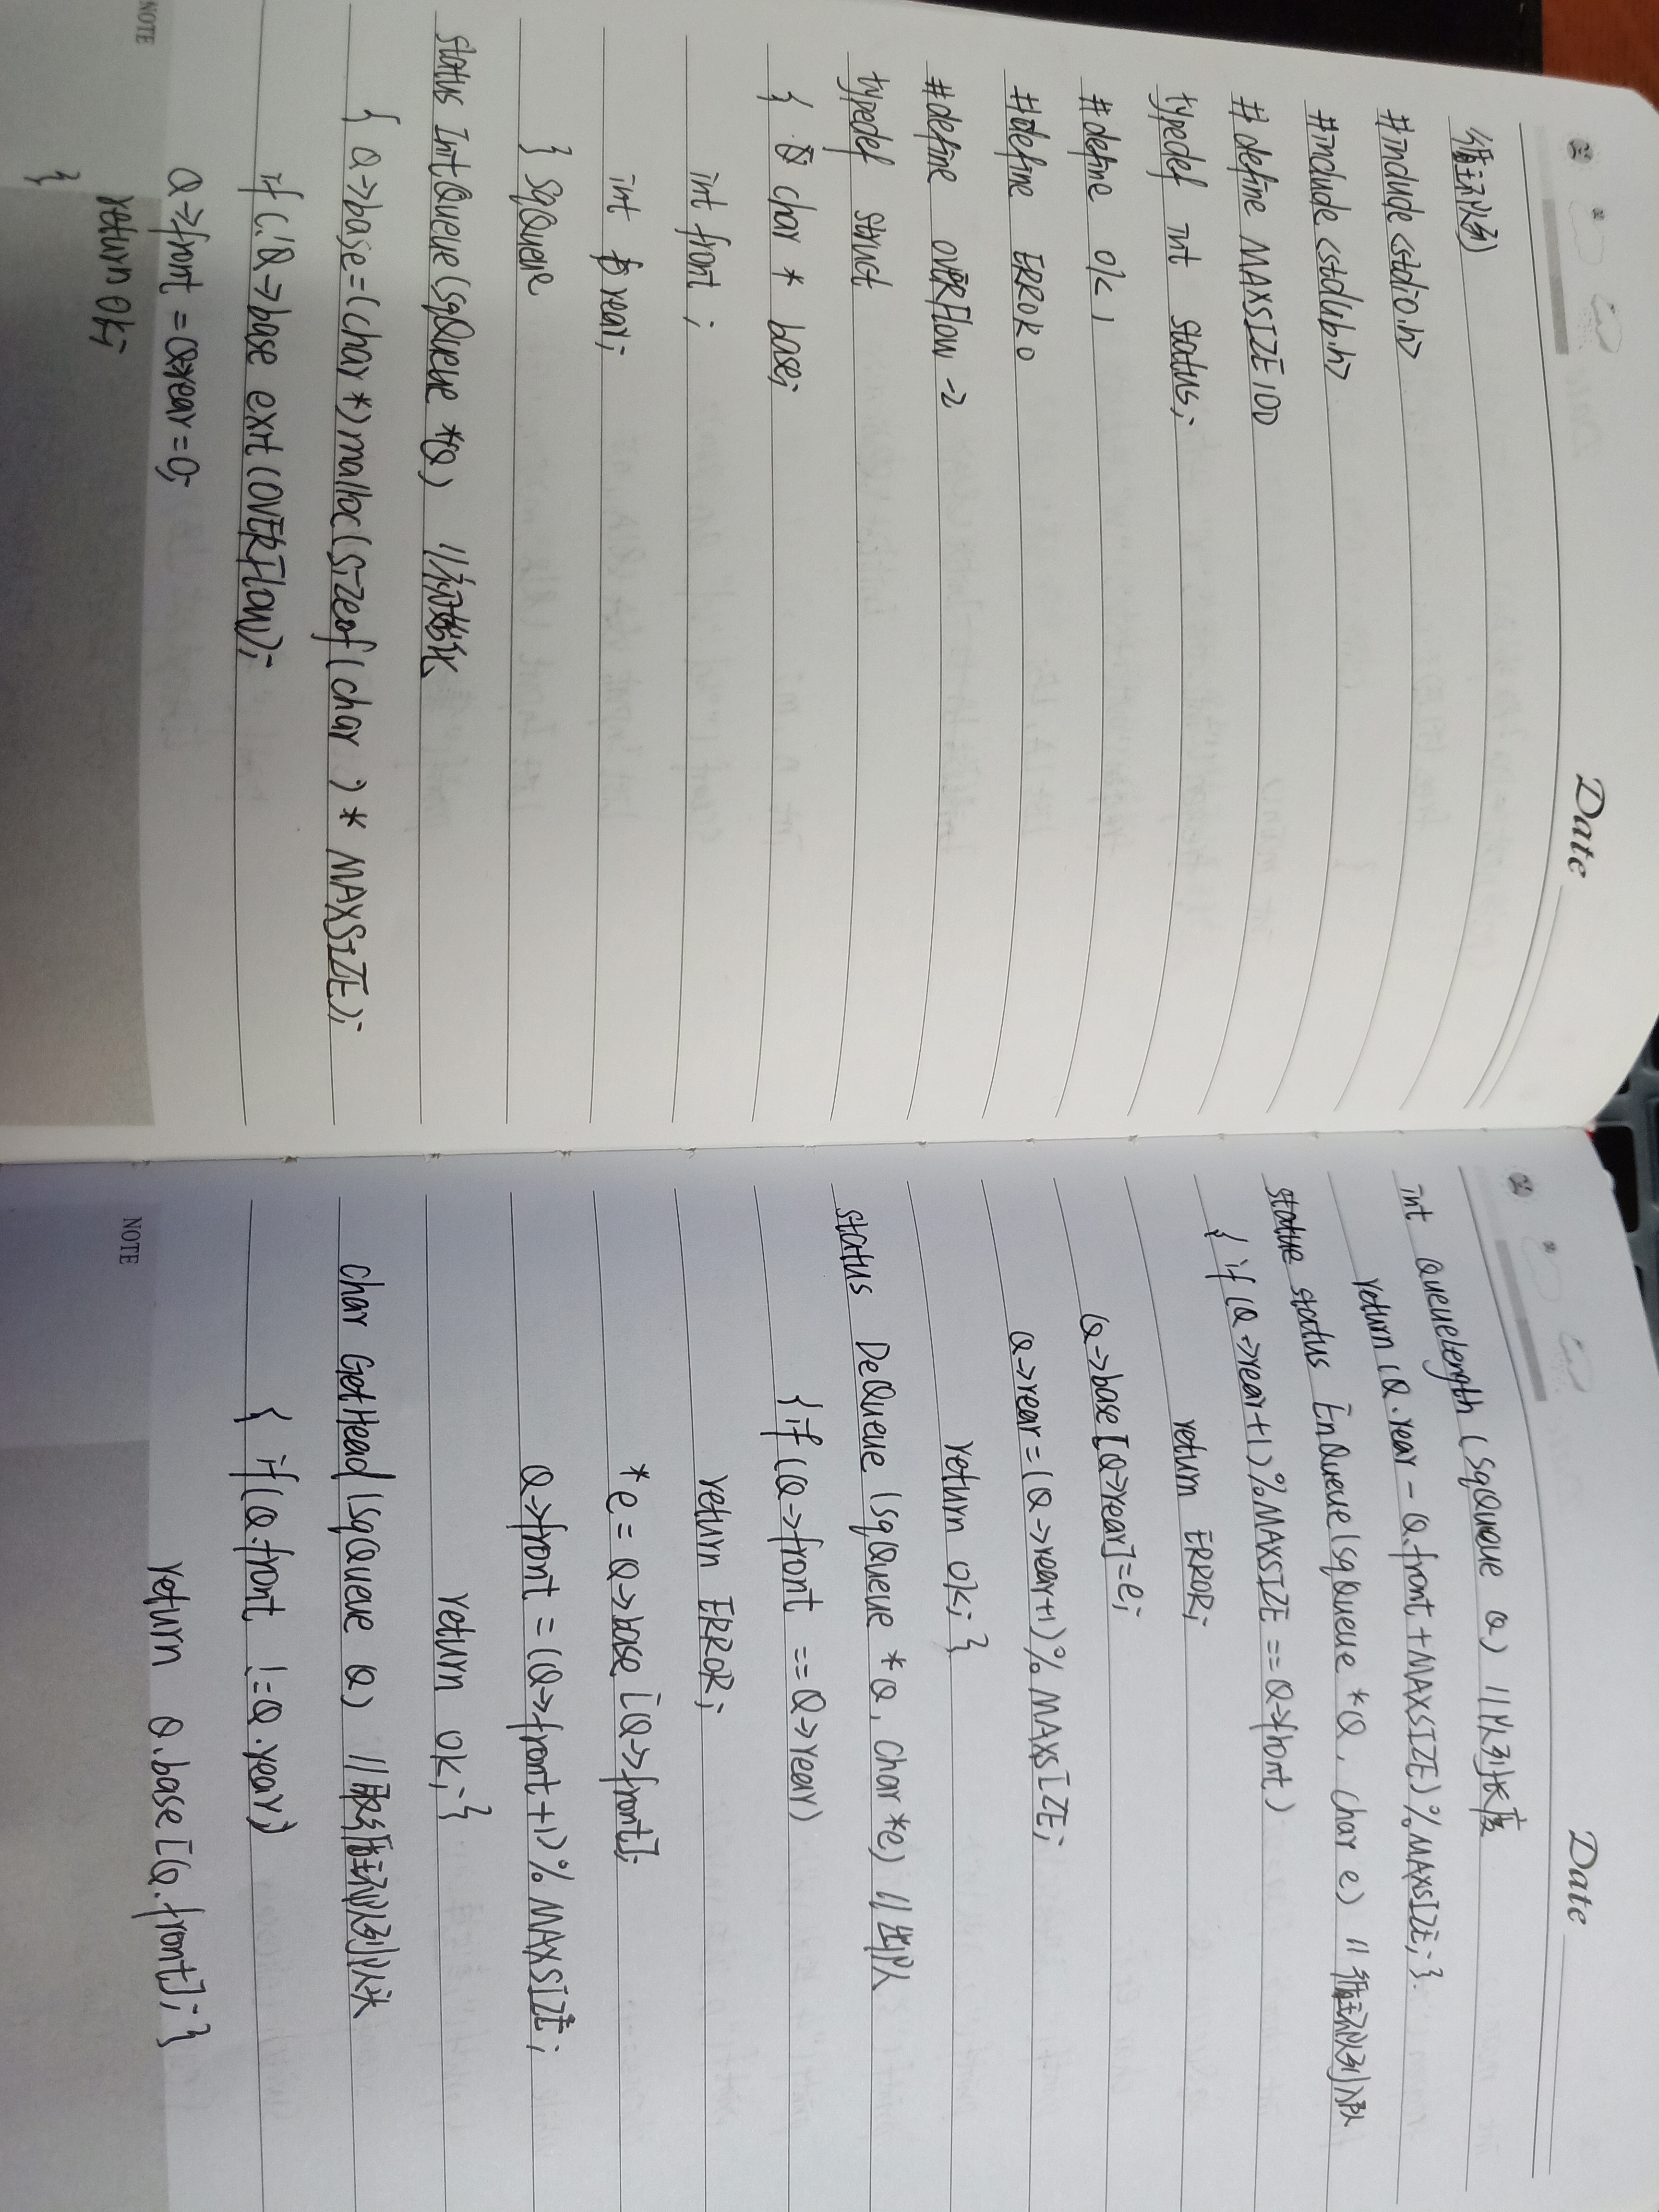 Date
循环队列
#include<stdio.h>
#include<stdlib.h>
#define MAXSIZE 100
typedef int status;
#define Ok 1
#define ERROR 0
#define OVERFlow -2
typedef struct
{ char * base;
int front;
int rear;
} SqQueue
status IntQueue(SqQueue *Q) //初始化
{ Q->base=(char*)malloc(sizeof(char)*MAXSIZE);
if(!Q->base exit(OVERFlow);
Q->front=Q->rear=0;
return Ok;
}
NOTE
Date
int QueueLength(SqQueue Q) //队列长度
return(Q.rear-Q.front+MAXSIZE)%MAXSIZE;}
status EnQueue(SqQueue *Q, char e) //循环队列入队
{ if(Q->rear+1)%MAXSIZE==Q->front)
return ERROR;
Q->base[Q->rear]=e;
Q->rear=(Q->rear+1)%MAXSIZE;
return Ok;}
status DeQueue(SqQueue *Q, char *e) //出队
{if(Q->front==Q->rear)
return ERROR;
*e=Q->base[Q->front];
Q->front=(Q->front+1)%MAXSIZE;
return Ok;}
char GetHead(SqQueue Q) //取循环队列队头
{ if(Q.front !=Q.rear)
return Q.base[Q.front];}
NOTE